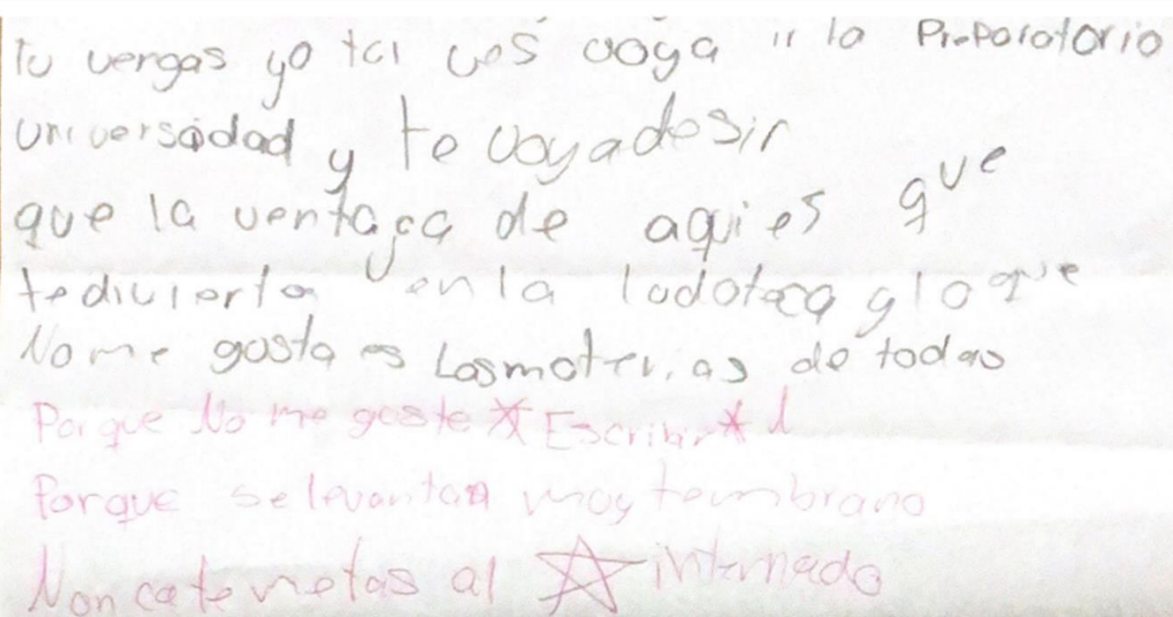 Tu vergas yo tal ves voya ir la Preparatorio
universidad y te voyadesir
que la ventaga de aqui es que
tedivierta en la ludoteca y lo que
No me gosta es Las materias de todas
Porque No me goste * Escribir *
Porque se levantan moy tembrano
Nonca te metas al ☆ internado